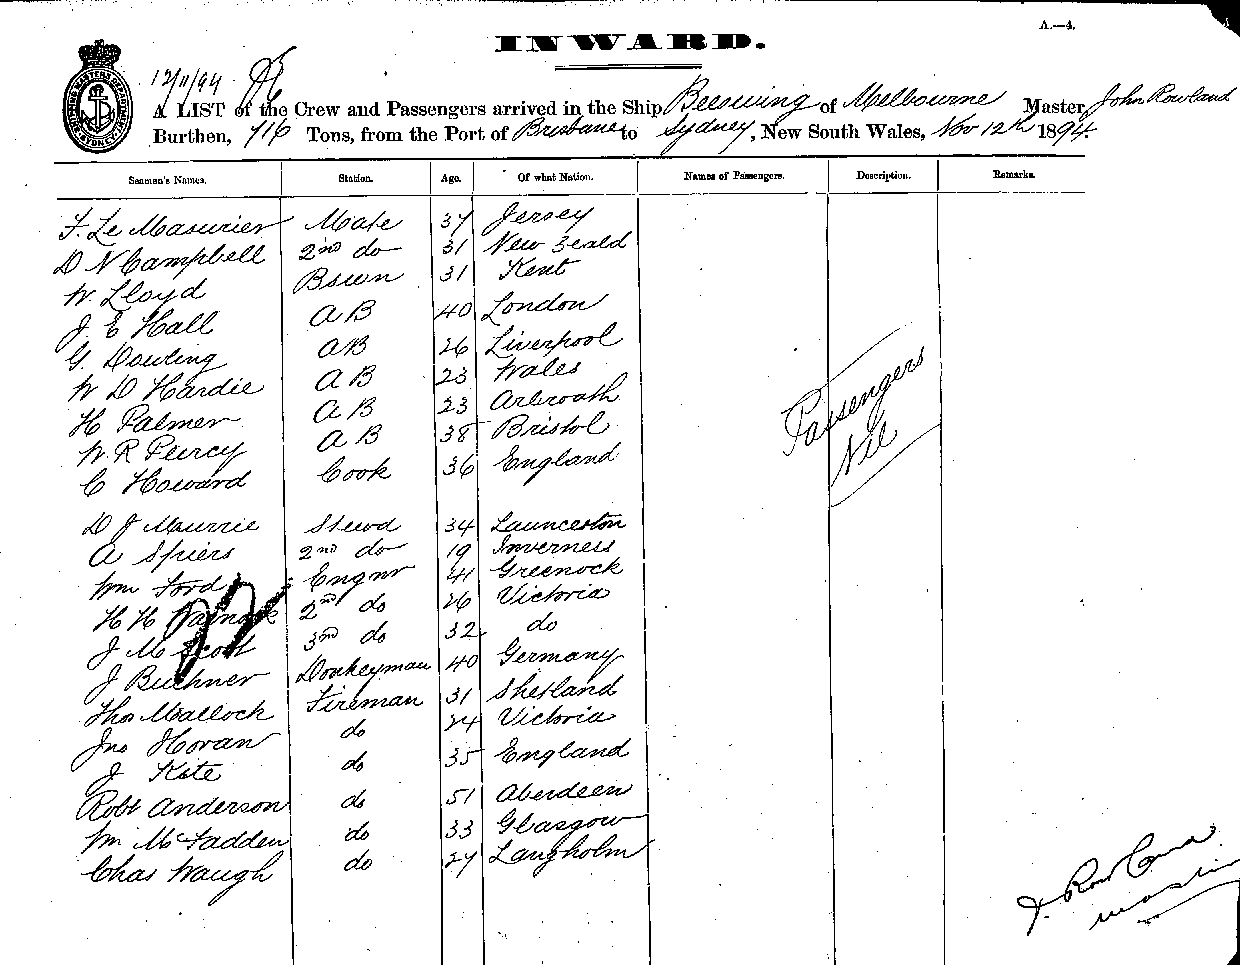 A.—4.
INWARD.
12/11/94
A LIST of the Crew and Passengers arrived in the Ship Beeswing of Melbourne Master, John Rowland
Burthen, 716 Tons, from the Port of Brisbane to Sydney, New South Wales, Nov 12th 1894.
Seamen's Names. Station. Age. Of what Nation. Names of Passengers. Description. Remarks.
F. Le Masurier Mate 37 Jersey
D N Campbell 2nd do 31 New Zeald
W. Lloyd Bswn 31 Kent
J. E Hall A B 40 London
G. Dowling AB 26 Liverpool
W D Hardie A B 23 Wales
H Palmer A B 23 Arbroath
W. R Peircy A B 38 Bristol
C Howard Cook 36 England
Passengers
Nil
D J Mourrie Stewd 34 Launceston
A Spiers 2nd do 19 Inverness
Wm Ford Engnr 41 Greenock
H H Warnock 2nd do 26 Victoria
J McScott 3rd do 32 do
J Buchner Donkeyman 40 Germany
Thos Mallock Fireman 31 Shetland
Jno Horan do 24 Victoria
J Kate do 35 England
Robt Anderson do 51 Aberdeen
Wm McFadden do 33 Glasgow
Chas Waugh do 27 Langholm
J. Rowland